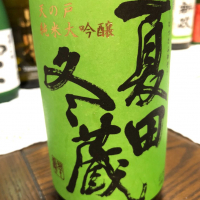 純米大吟醸
夏田
冬蔵